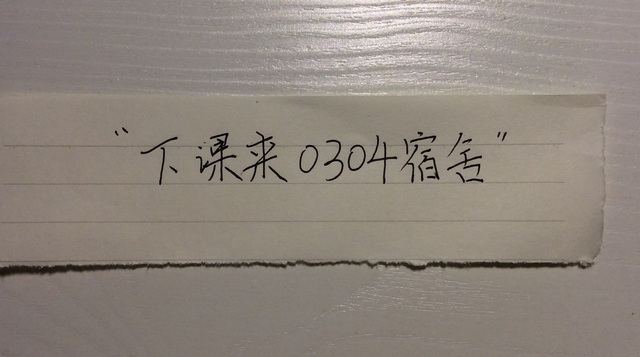 “下课来0304宿舍”